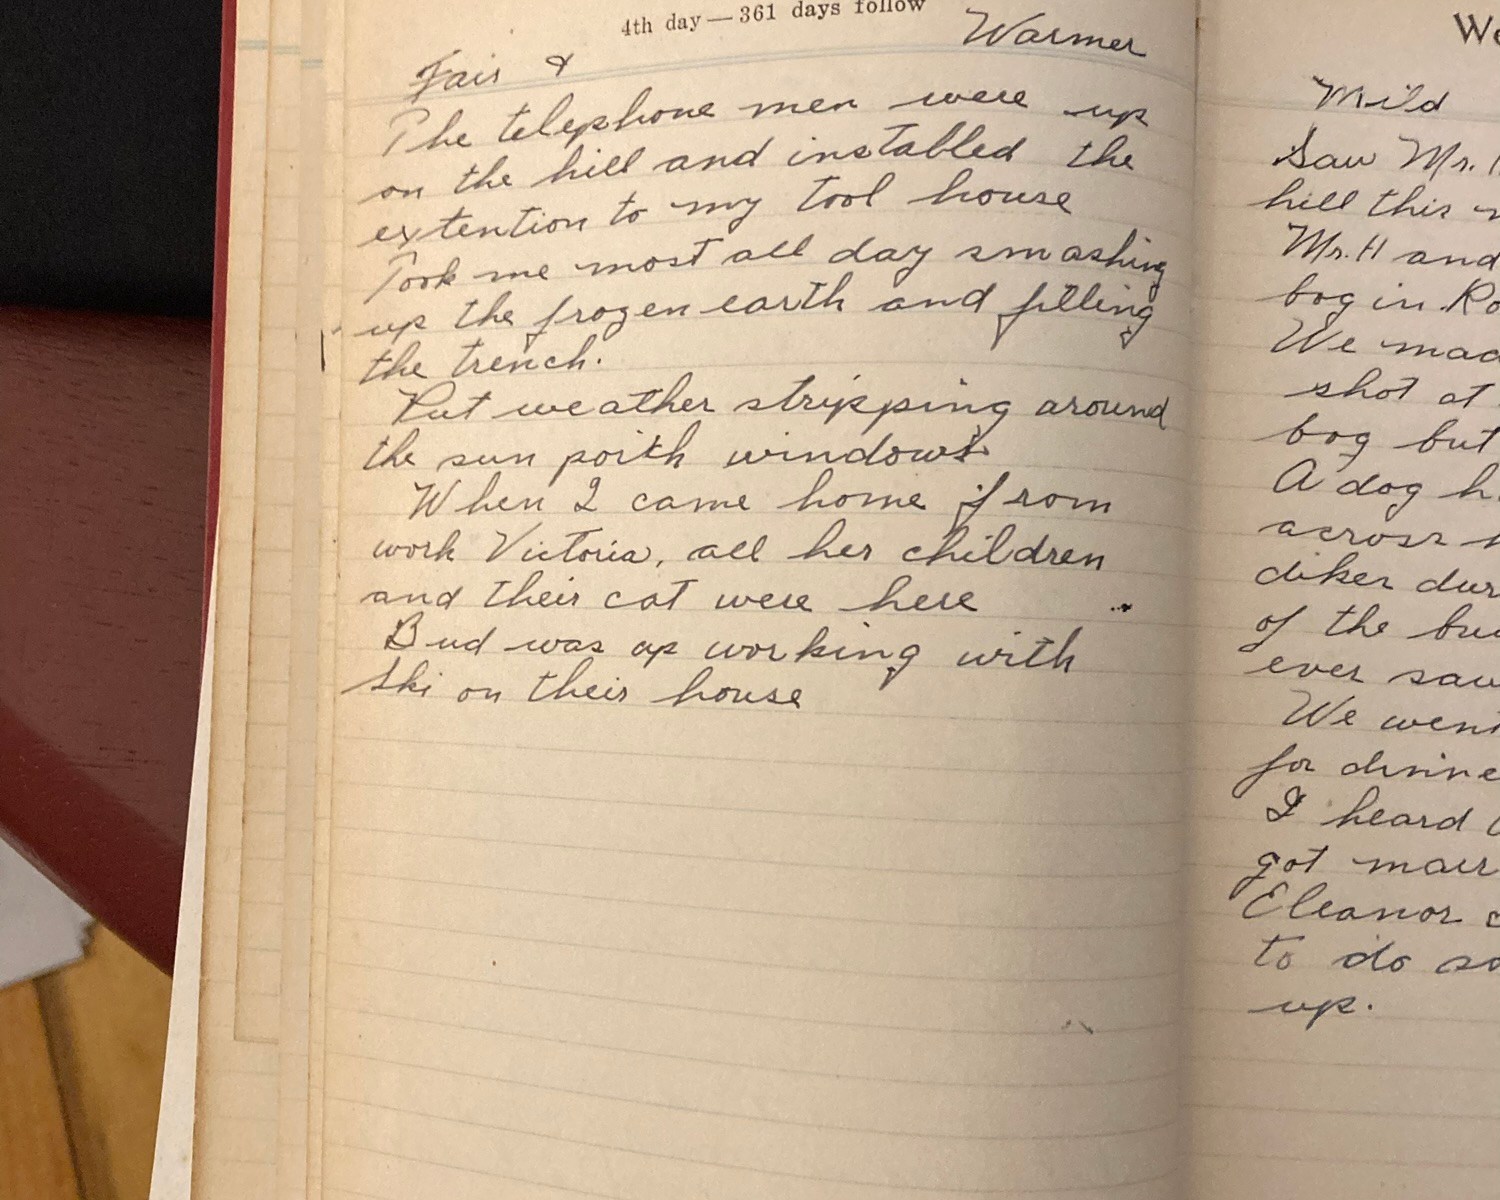 4th day—361 days follow
Fair & Warmer
The telephone men were up
on the hill and instabled the
extention to my tool house
Took me most all day smashing
up the frozen earth and filling
the trench.
Put weather stripping around
the sun porth windows.
When I came home from
work Victoria, all her children
and their cat were here
Bud was up working with
Ski on their house
We
Mild
Saw Mr.
hill this
Mr. H and
bog in
We
shot at
bog but
A dog
across
diker
of the
ever saw
We went
for
I heard
got
Eleanor
to do
up.